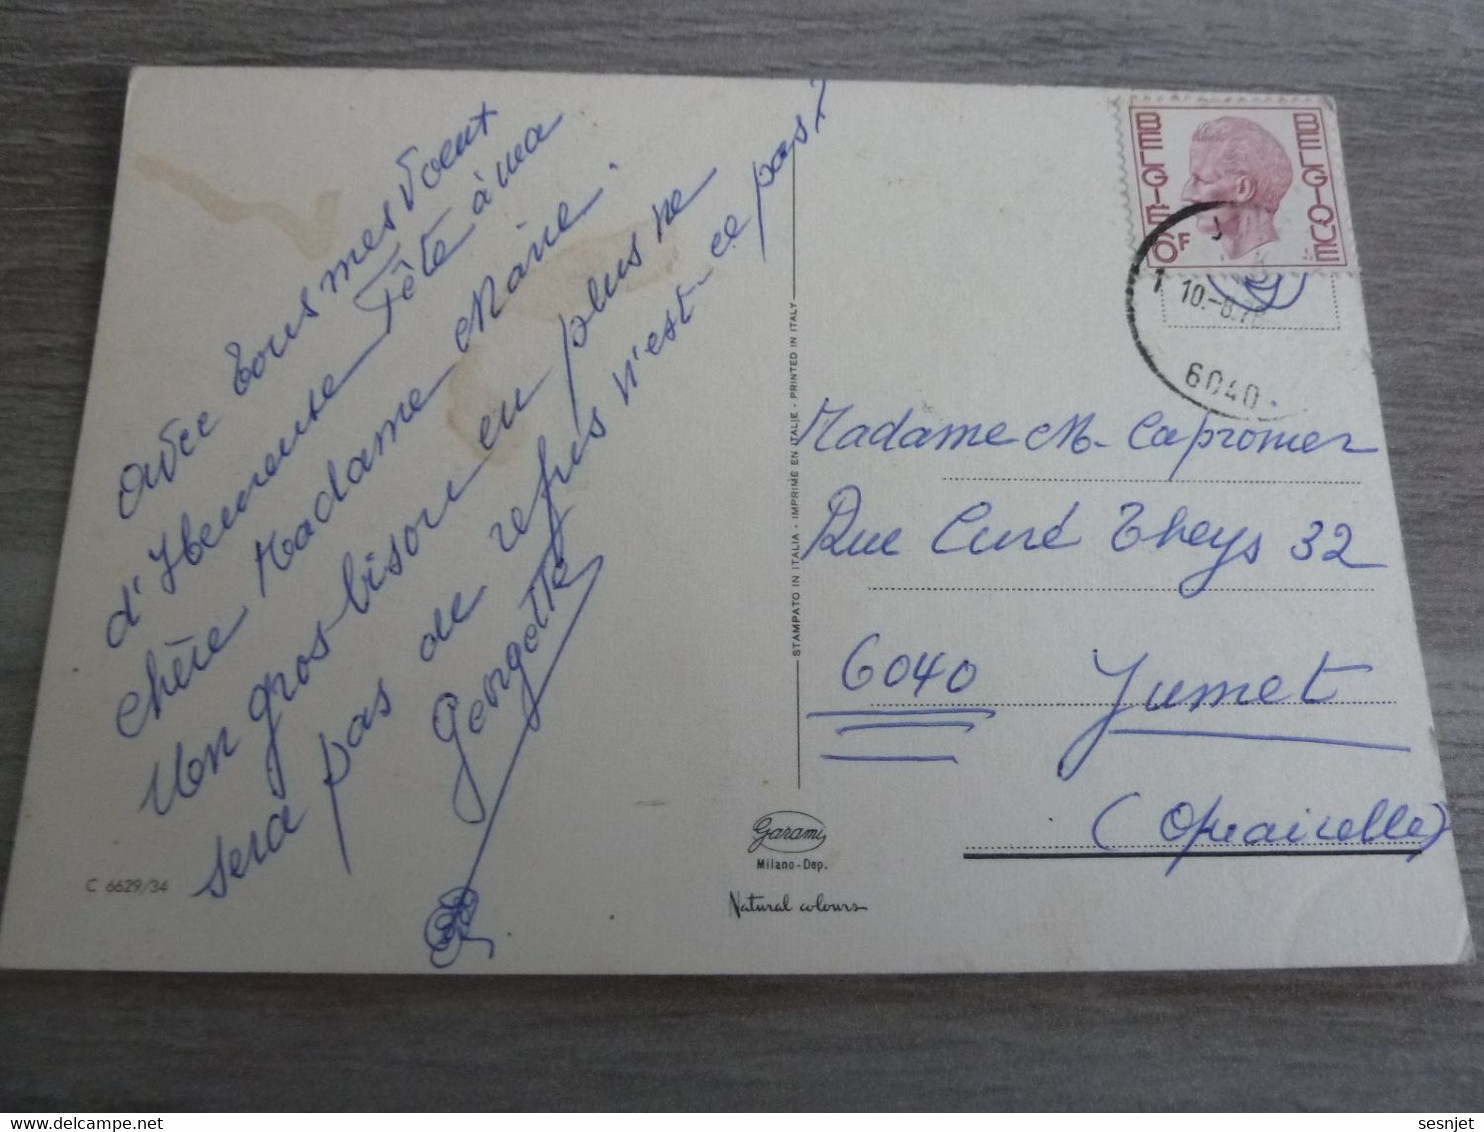 avec tous mes Voeux
d'Heureuse Fête à ma
chère Madame Marie.
Mon gros bisou en plus ne
sera pas de refus n'est-ce pas?
Georgette
C 6629/34
STAMPATO IN ITALIA - IMPRIMÉ EN ITALIE - PRINTED IN ITALY
Garami
Milano-Dep.
Natural colours
BELGIE BELGIQUE
6F
10.-8.76
6040
Madame M. Capromer
Rue Curé Theys 32
6040 Jumet
sesnjet